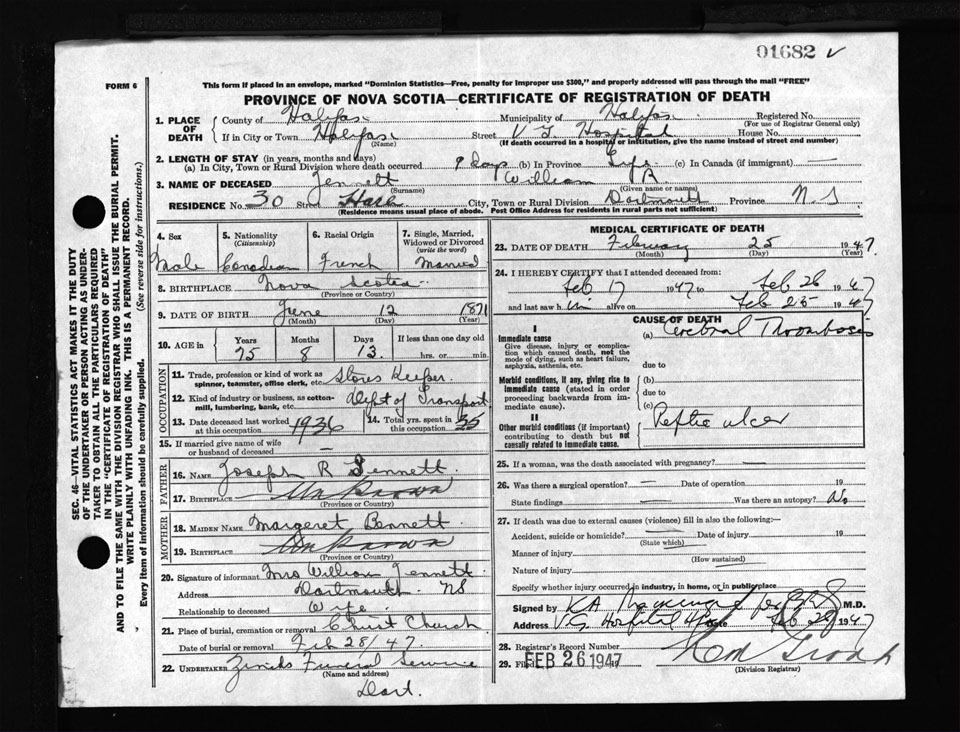 01682 ✓
FORM 6
This form if placed in an envelope, marked "Dominion Statistics—Free, penalty for improper use $300," and properly addressed will pass through the mail "FREE"
PROVINCE OF NOVA SCOTIA—CERTIFICATE OF REGISTRATION OF DEATH
SEC. 46—VITAL STATISTICS ACT MAKES IT THE DUTY
OF THE UNDERTAKER OR PERSON ACTING AS UNDER-
TAKER TO OBTAIN ALL THE PARTICULARS REQUIRED
IN THE "CERTIFICATE OF REGISTRATION OF DEATH"
AND TO FILE THE SAME WITH THE DIVISION REGISTRAR WHO SHALL ISSUE THE BURIAL PERMIT.
WRITE PLAINLY WITH UNFADING INK. THIS IS A PERMANENT RECORD.
Every item of information should be carefully supplied. (See reverse side for instructions.)
1. PLACE OF DEATH
County of Halifax Municipality of Halifax Registered No.
(For use of Registrar General only)
If in City or Town Halifax Street V G Hospital House No.
(Name) (If death occurred in a hospital or institution, give the name instead of street and number)
2. LENGTH OF STAY (in years, months and days)
(a) In City, Town or Rural Division where death occurred 9 days (b) In Province Life (c) In Canada (if immigrant) —
3. NAME OF DECEASED Jennett William R.
(Surname) (Given name or names)
RESIDENCE No. 30 Street City, Town or Rural Division Dartmouth Province N S
(Residence means usual place of abode. Post Office Address for residents in rural parts not sufficient)
4. Sex 5. Nationality 6. Racial Origin 7. Single, Married,
(Citizenship) Widowed or Divorced
(write the word)
Male Canadian French Married
8. BIRTHPLACE Nova Scotia
(Province or Country)
9. DATE OF BIRTH June 12 1871
(Month) (Day) (Year)
10. AGE in Years Months Days If less than one day old
75 8 13 hrs. or min.
OCCUPATION
11. Trade, profession or kind of work as
spinner, teamster, office clerk, etc. Stores Keeper
12. Kind of industry or business, as cotton-
mill, lumbering, bank, etc. Dept of Transport
13. Date deceased last worked at this occupation 1936 14. Total yrs. spent in this occupation 35
15. If married give name of wife
or husband of deceased —
FATHER
16. NAME Joseph R Jennett
17. BIRTHPLACE Unknown
(Province or Country)
MOTHER
18. MAIDEN NAME Margaret Bennett
19. BIRTHPLACE Unknown
(Province or Country)
20. Signature of informant Mrs William Jennett
Address Dartmouth NS
Relationship to deceased Wife
21. Place of burial, cremation or removal Christ Church
Date of burial or removal Feb 28/47
22. UNDERTAKER Zincks Funeral Service
(Name and address)
Dart.
MEDICAL CERTIFICATE OF DEATH
23. DATE OF DEATH February 25 1947
(Month) (Day) (Year)
24. I HEREBY CERTIFY that I attended deceased from:
Feb 17 1947 to Feb 26 1947
and last saw him alive on Feb 25 1947
CAUSE OF DEATH
I
Immediate cause (a) Cerebral Thrombosis
Give disease, injury or complica-
tion which caused death, not the
mode of dying, such as heart failure,
asphyxia, asthenia, etc.
due to
Morbid conditions, if any, giving rise to (b)
immediate cause (stated in order
proceeding backwards from im-
mediate cause).
due to
(c)
II
Other morbid conditions (if important)
contributing to death but not
causally related to immediate cause.
Peptic ulcer
25. If a woman, was the death associated with pregnancy? —
26. Was there a surgical operation? — Date of operation 19
State findings Was there an autopsy? No
27. If death was due to external causes (violence) fill in also the following:—
Accident, suicide or homicide? Date of injury 19
(State which)
Manner of injury
(How sustained)
Nature of injury
Specify whether injury occurred in industry, in home, or in public place
Signed by M.D.
Address V.G. Hospital Feb 1947
28. Registrar's Record Number
29. Filed FEB 26 1947
(Division Registrar)